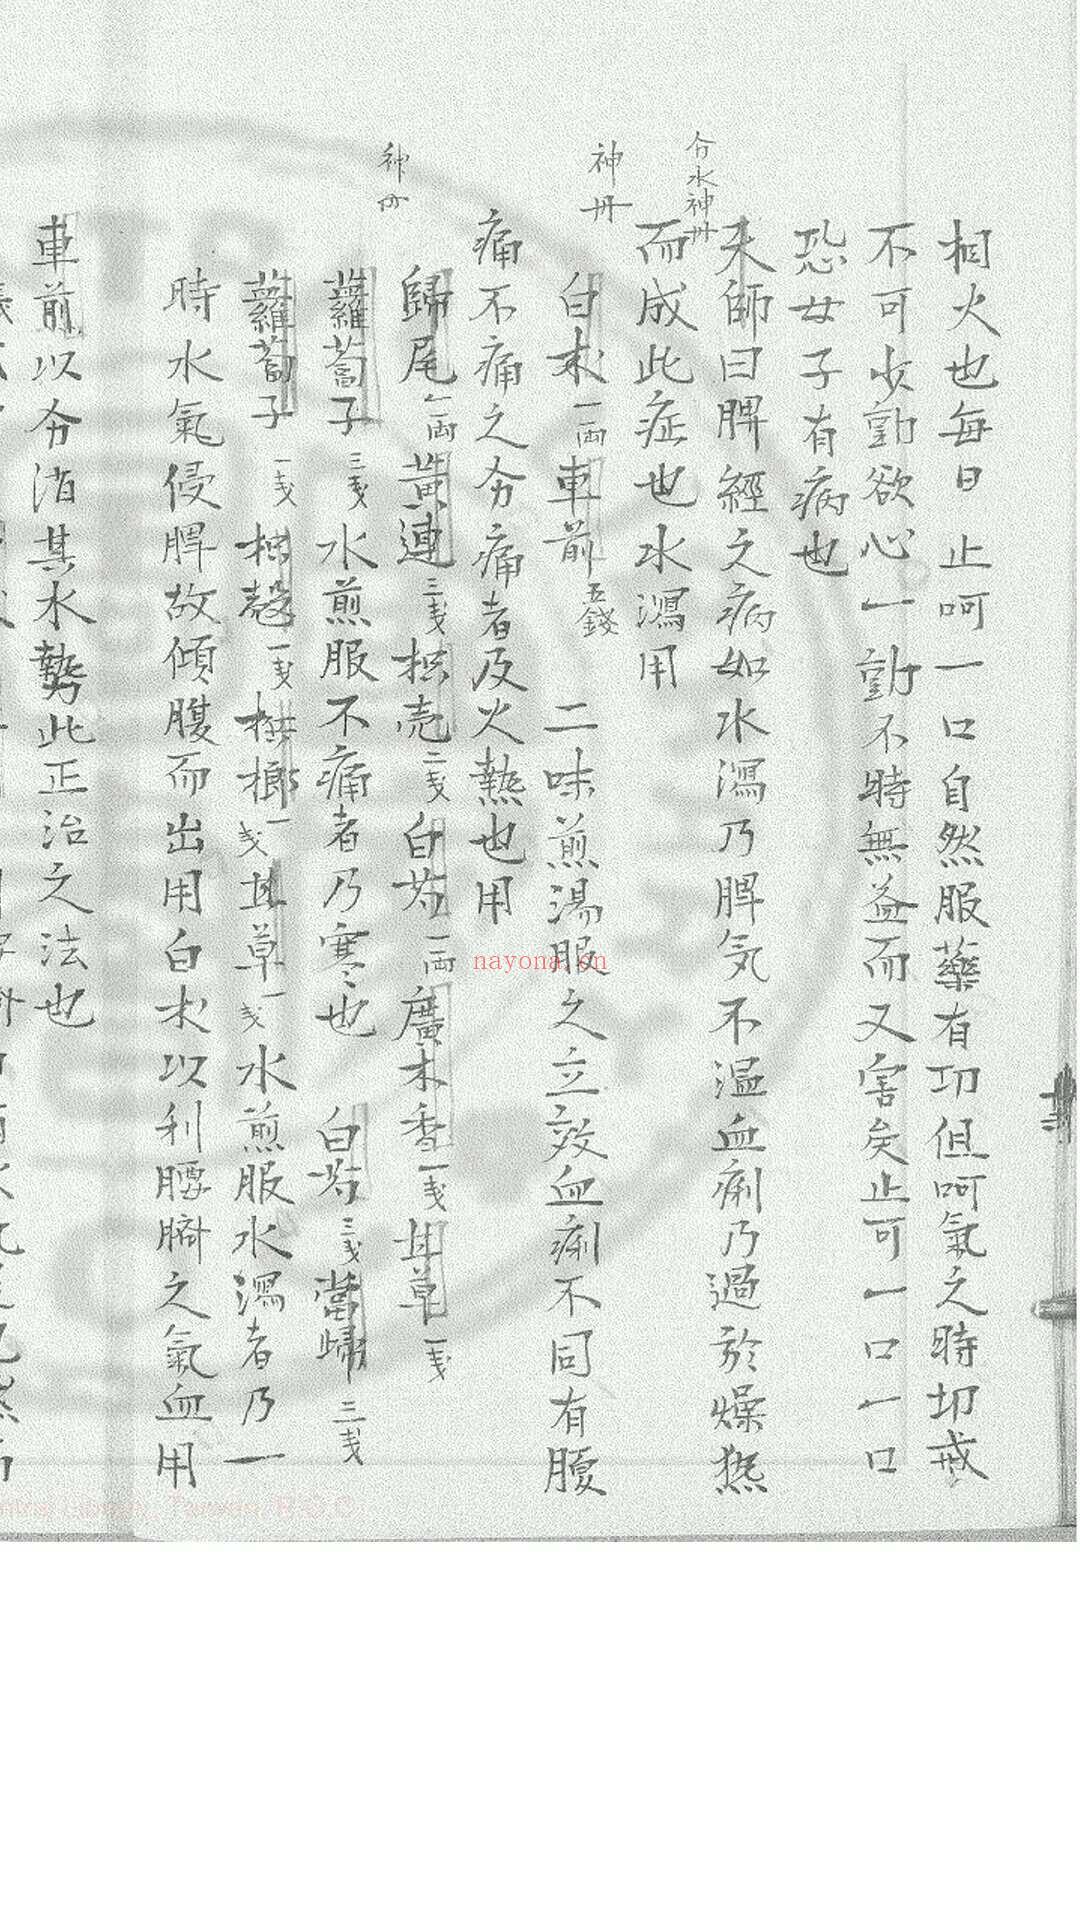 相火也每日止呵一口自然服藥有功但呵氣之時切戒
不可少動欲心一動不時無益而又害矣止可一口一口
恐女子有病也
分水神丹
天師曰脾經之病如水瀉乃脾气不溫血痢乃過於燥热
而成此症也水瀉用
神丹
白朮一両車前五錢 二味煎湯服之立效血痢不同有腹
痛不痛之分痛者及火熱也用
神丹
歸尾一両黃連三戋枳壳二戋白芍一両廣木香一戋甘草一戋
蘿蔔子三戋水煎服不痛者乃寒也 白芍三戋當歸三戋
蘿蔔子一戋枳殼一戋檳榔一戋甘草一戋水煎服水瀉者乃一
時水氣侵脾故傾腹而出用白朮以利腰臍之氣血用
車前以分消其水勢此正治之法也
nayona.cn
Central Library, Taiwan, R.O.C